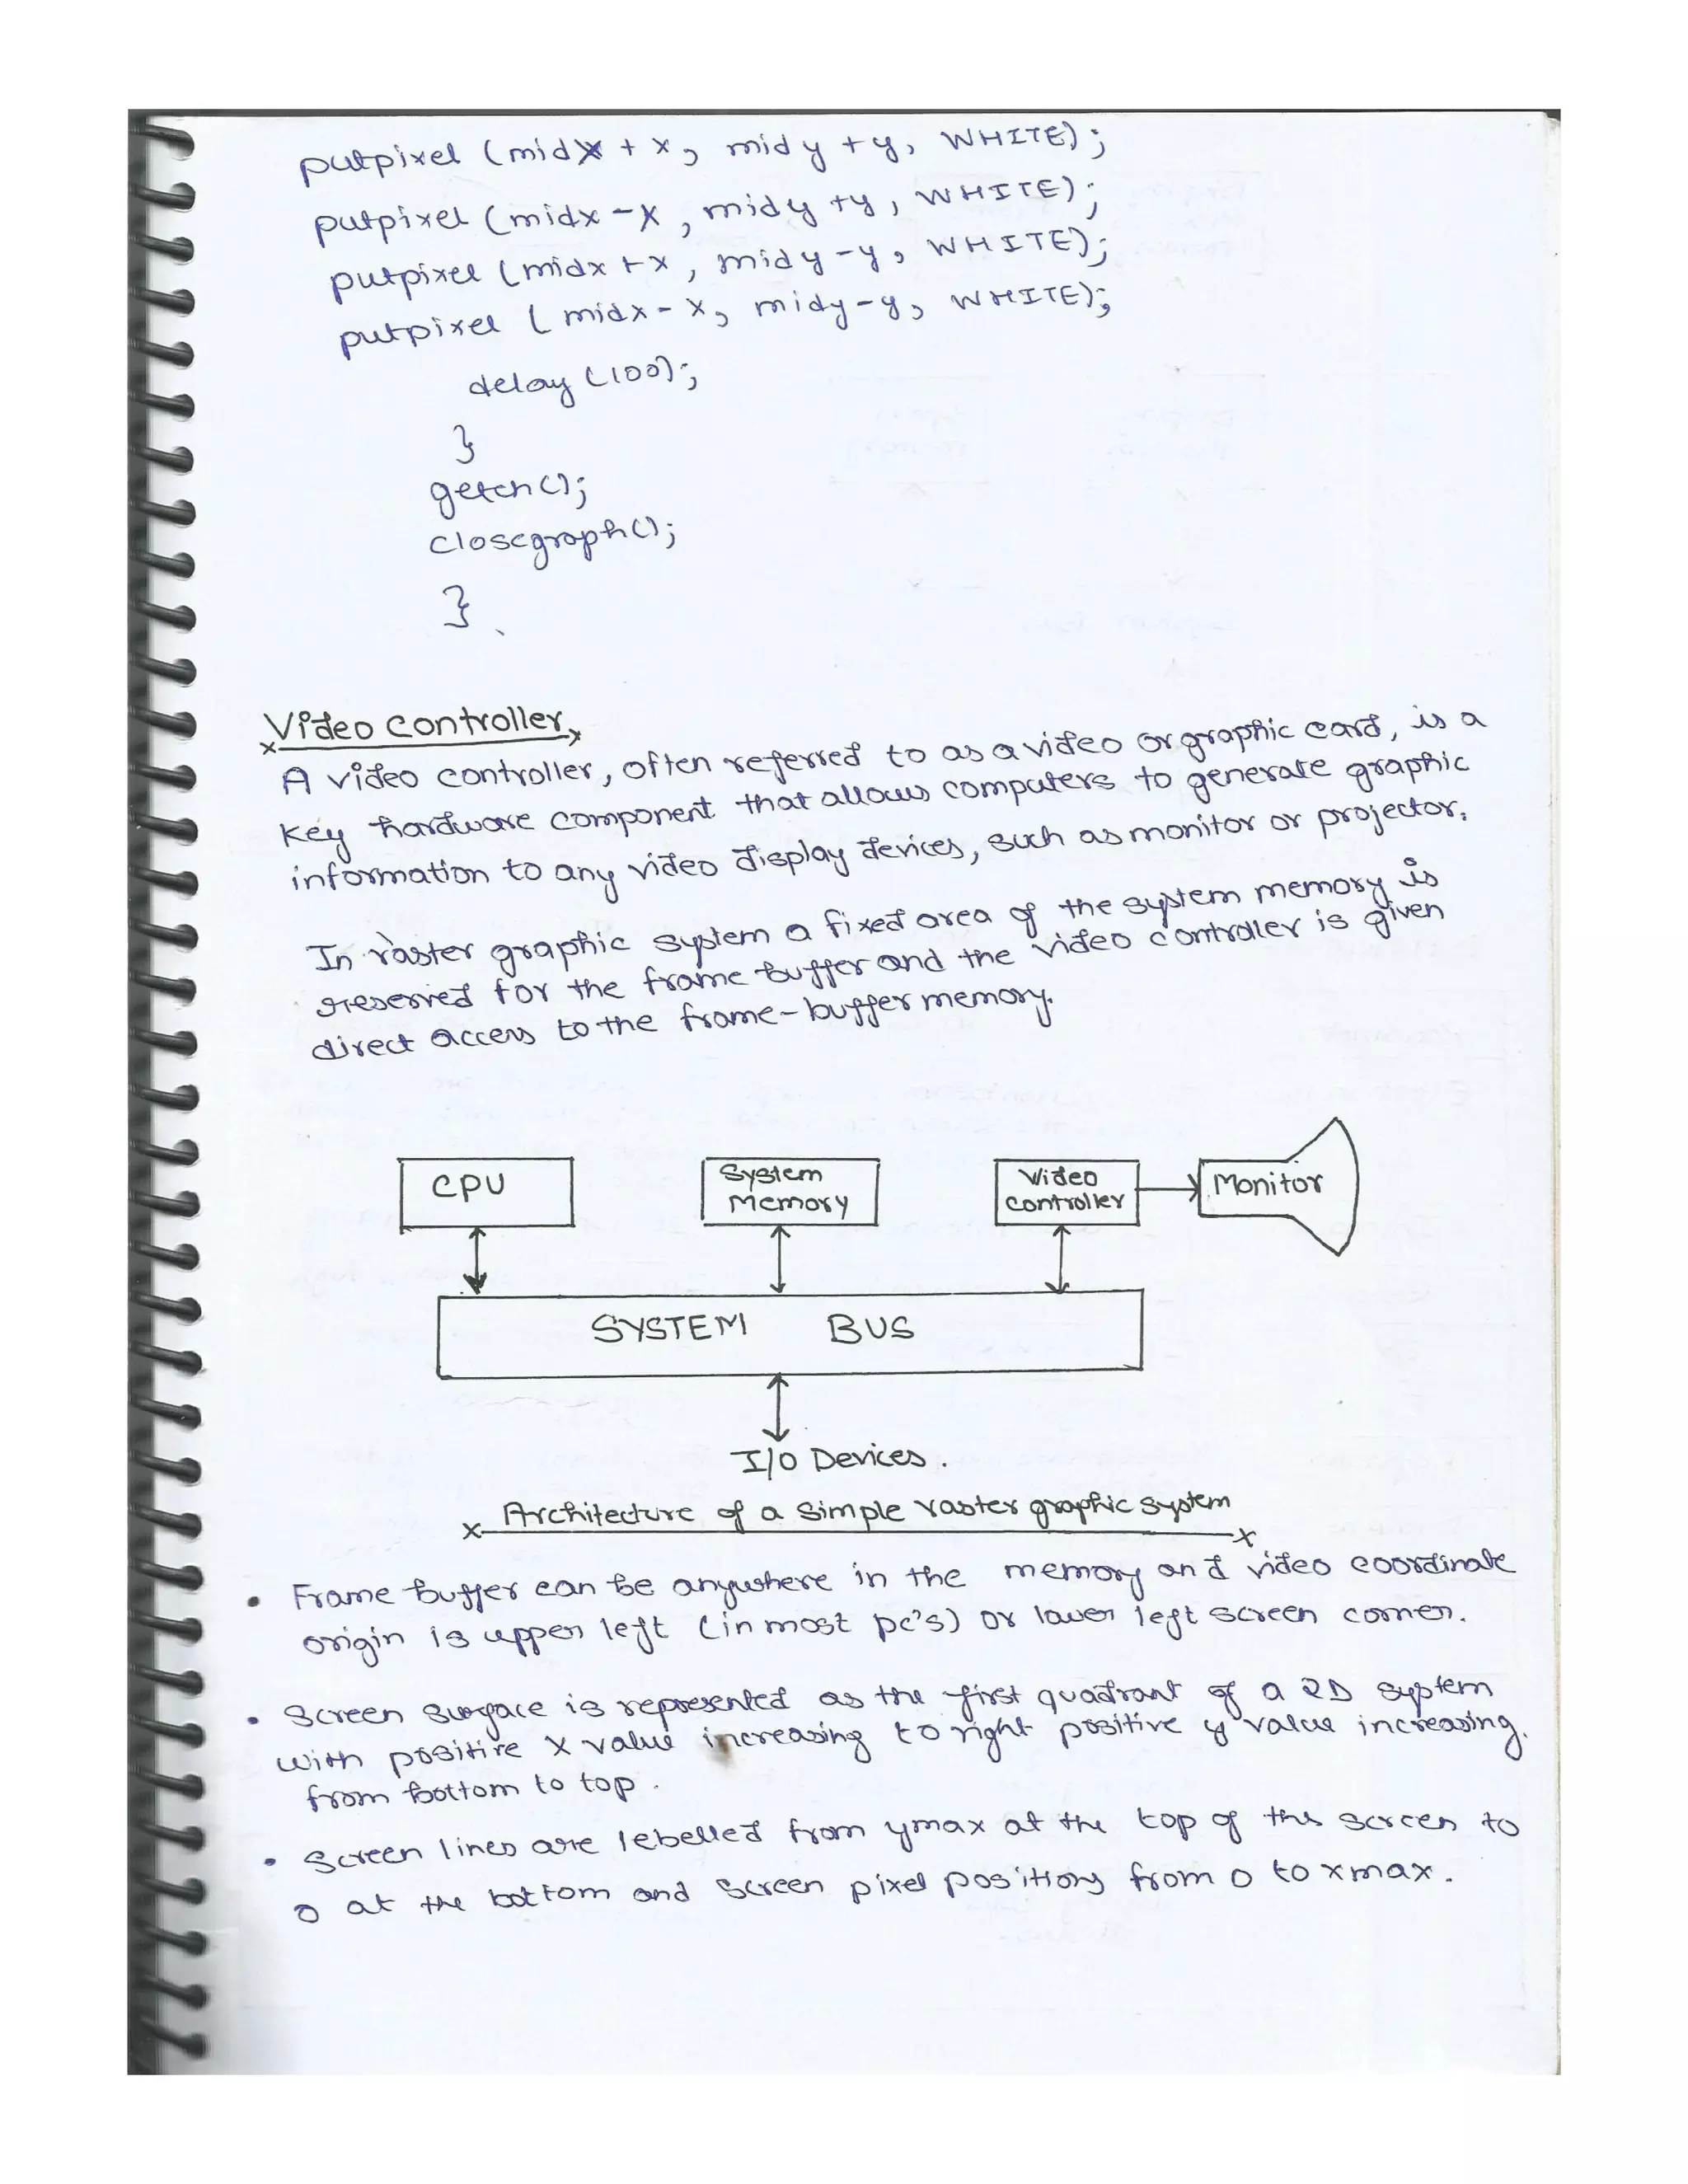 putpixel (midx + x, midy + y, WHITE);
putpixel (midx - x, midy + y, WHITE);
putpixel (midx + x, midy - y, WHITE);
putpixel (midx - x, midy - y, WHITE);
delay (100);
}
getch();
closegraph();
}
Video Controller
A video controller, often referred to as a video or graphic card, is a
key hardware component that allows computers to generate graphic
information to any video display devices, such as monitor or projector.
In raster graphic system a fixed area of the system memory is
reserved for the frame buffer and the video controller is given
direct access to the frame-buffer memory.
CPU
System
Memory
Video
Controller
Monitor
SYSTEM BUS
I/O Devices.
Architecture of a simple raster graphic system
• Frame buffer can be anywhere in the memory and video coordinate
origin is upper left (in most pc's) or lower left screen corner.
• Screen surface is represented as the first quadrant of a 2D system
with positive x value increasing to right positive y value increasing.
from bottom to top.
• Screen lines are lebelled from ymax at the top of the screen to
0 at the bottom and screen pixel positions from 0 to xmax.